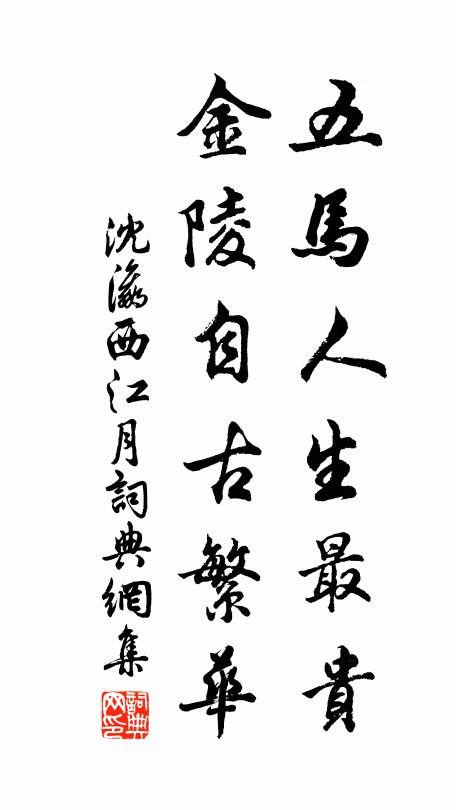 五馬人生最貴
金陵自古繁華
沈瀛西江月詞典網集
詞典網印